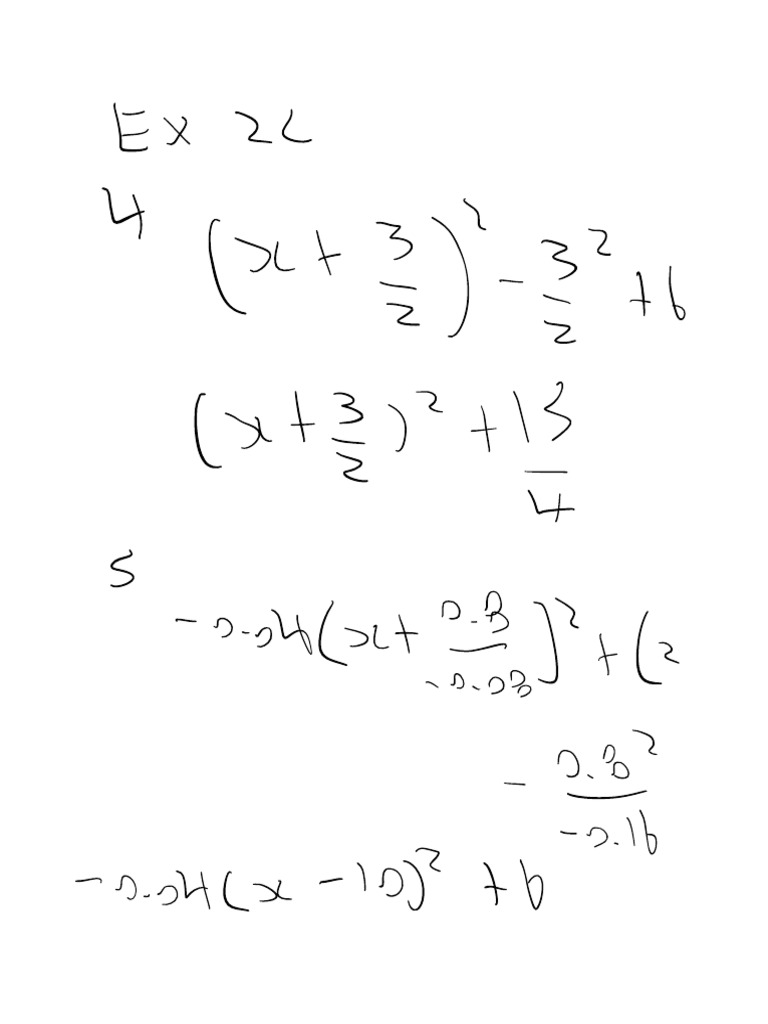 Ex 2C
4 (x + 3/2)² - 3²/2 + 6
(x + 3/2)² + 13/4
5
-0.04(x + 0.8/-0.08)² + (2
- 0.8²/-0.16
-0.04(x - 10)² + 6